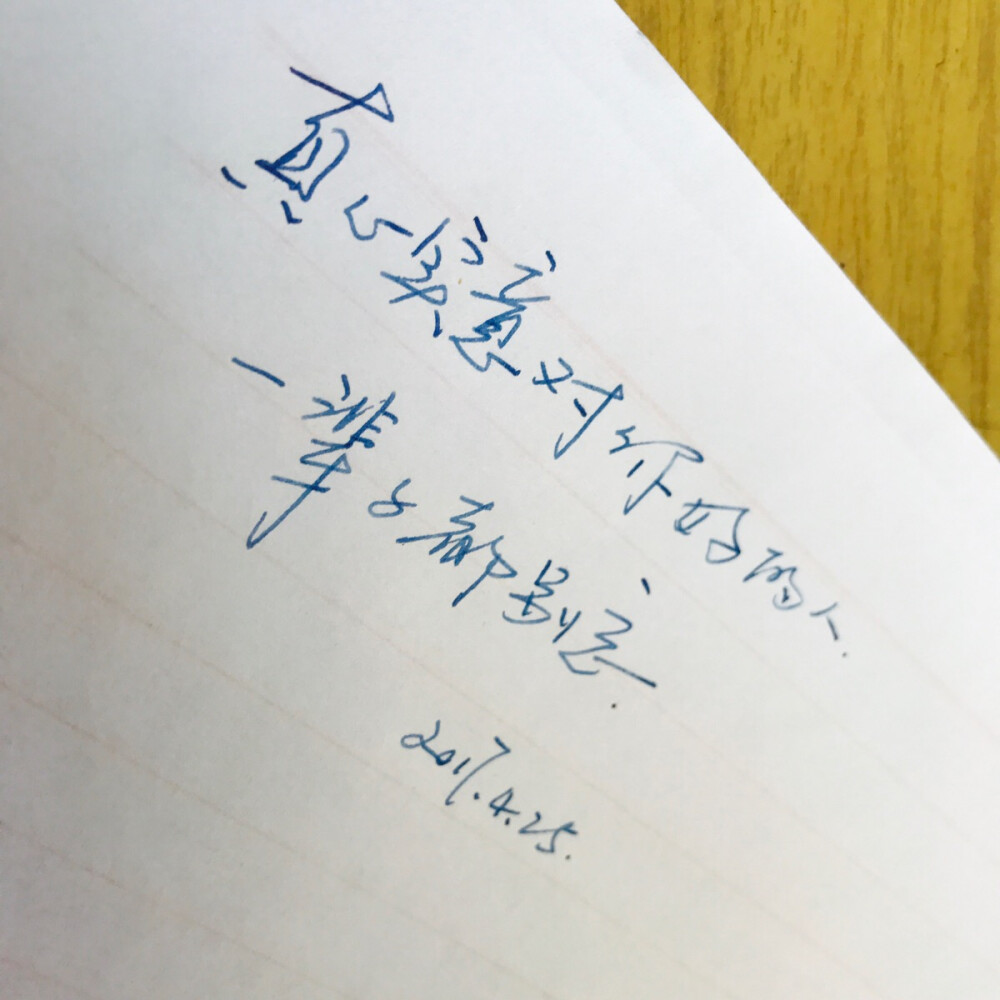 真心实意对你好的人.
一辈子都别忘.
2017.4.25.